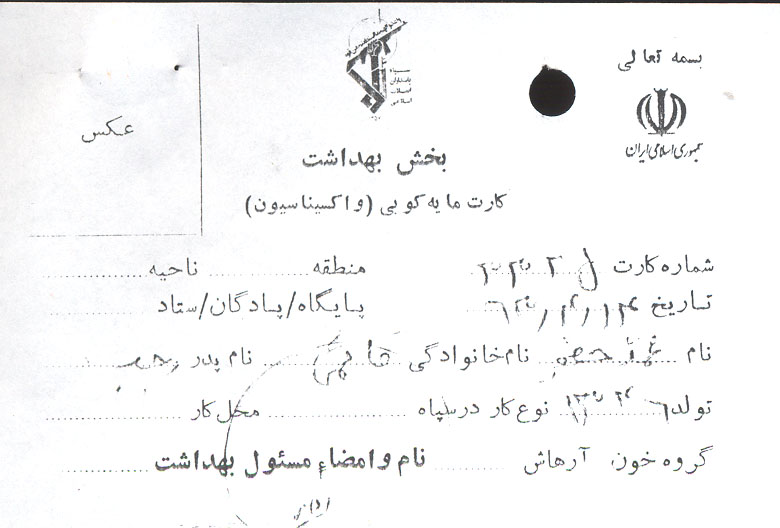 بسمه تعالی
جمهوری اسلامی ایران
سپاه
پاسداران
انقلاب
اسلامی
عکس
بخش بهداشت
کارت مایه کوبی (واکسیناسیون)
شماره کارت منطقه ناحیه
تاریخ پایگاه/پادگان/ستاد
نام نام خانوادگی نام پدر رجب
تولد نوع کار در سپاه محل کار
گروه خون آرهاش نام و امضاء مسئول بهداشت